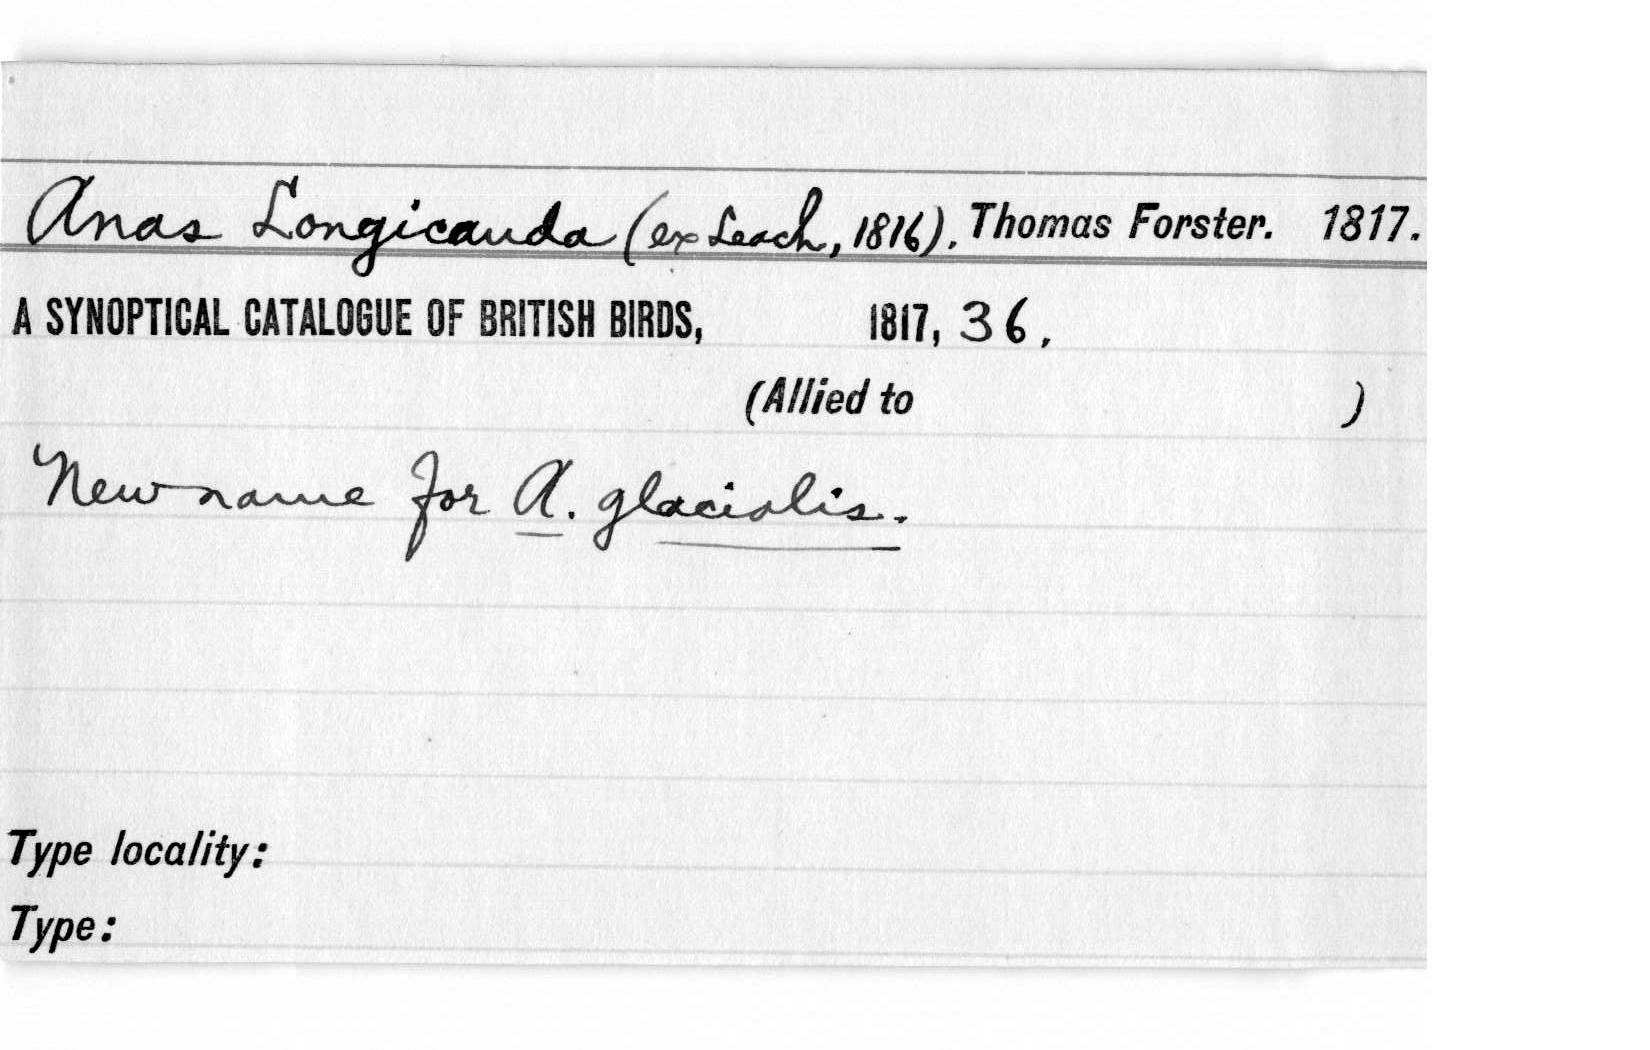 Anas Longicauda (ex Leach, 1816). Thomas Forster. 1817.
A SYNOPTICAL CATALOGUE OF BRITISH BIRDS, 1817, 36,
(Allied to )
New name for A. glacialis.
Type locality:
Type: